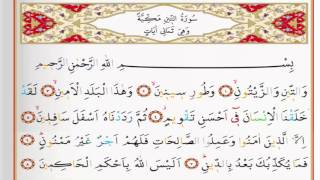 سُورَةُ التِّينِ مَكِّيَّةٌ
وَهِيَ ثَمَانِي آيَاتٍ
بِسْمِ اللهِ الرَّحْمٰنِ الرَّحِيمِ
وَالتِّينِ وَالزَّيْتُونِ وَطُورِ سِينِينَ وَهٰذَا الْبَلَدِ الْأَمِينِ لَقَدْ
خَلَقْنَا الْإِنْسَانَ فِي أَحْسَنِ تَقْوِيمٍ ثُمَّ رَدَدْنَاهُ أَسْفَلَ سَافِلِينَ
إِلَّا الَّذِينَ آمَنُوا وَعَمِلُوا الصَّالِحَاتِ فَلَهُمْ أَجْرٌ غَيْرُ مَمْنُونٍ
فَمَا يُكَذِّبُكَ بَعْدُ بِالدِّينِ أَلَيْسَ اللهُ بِأَحْكَمِ الْحَاكِمِينَ